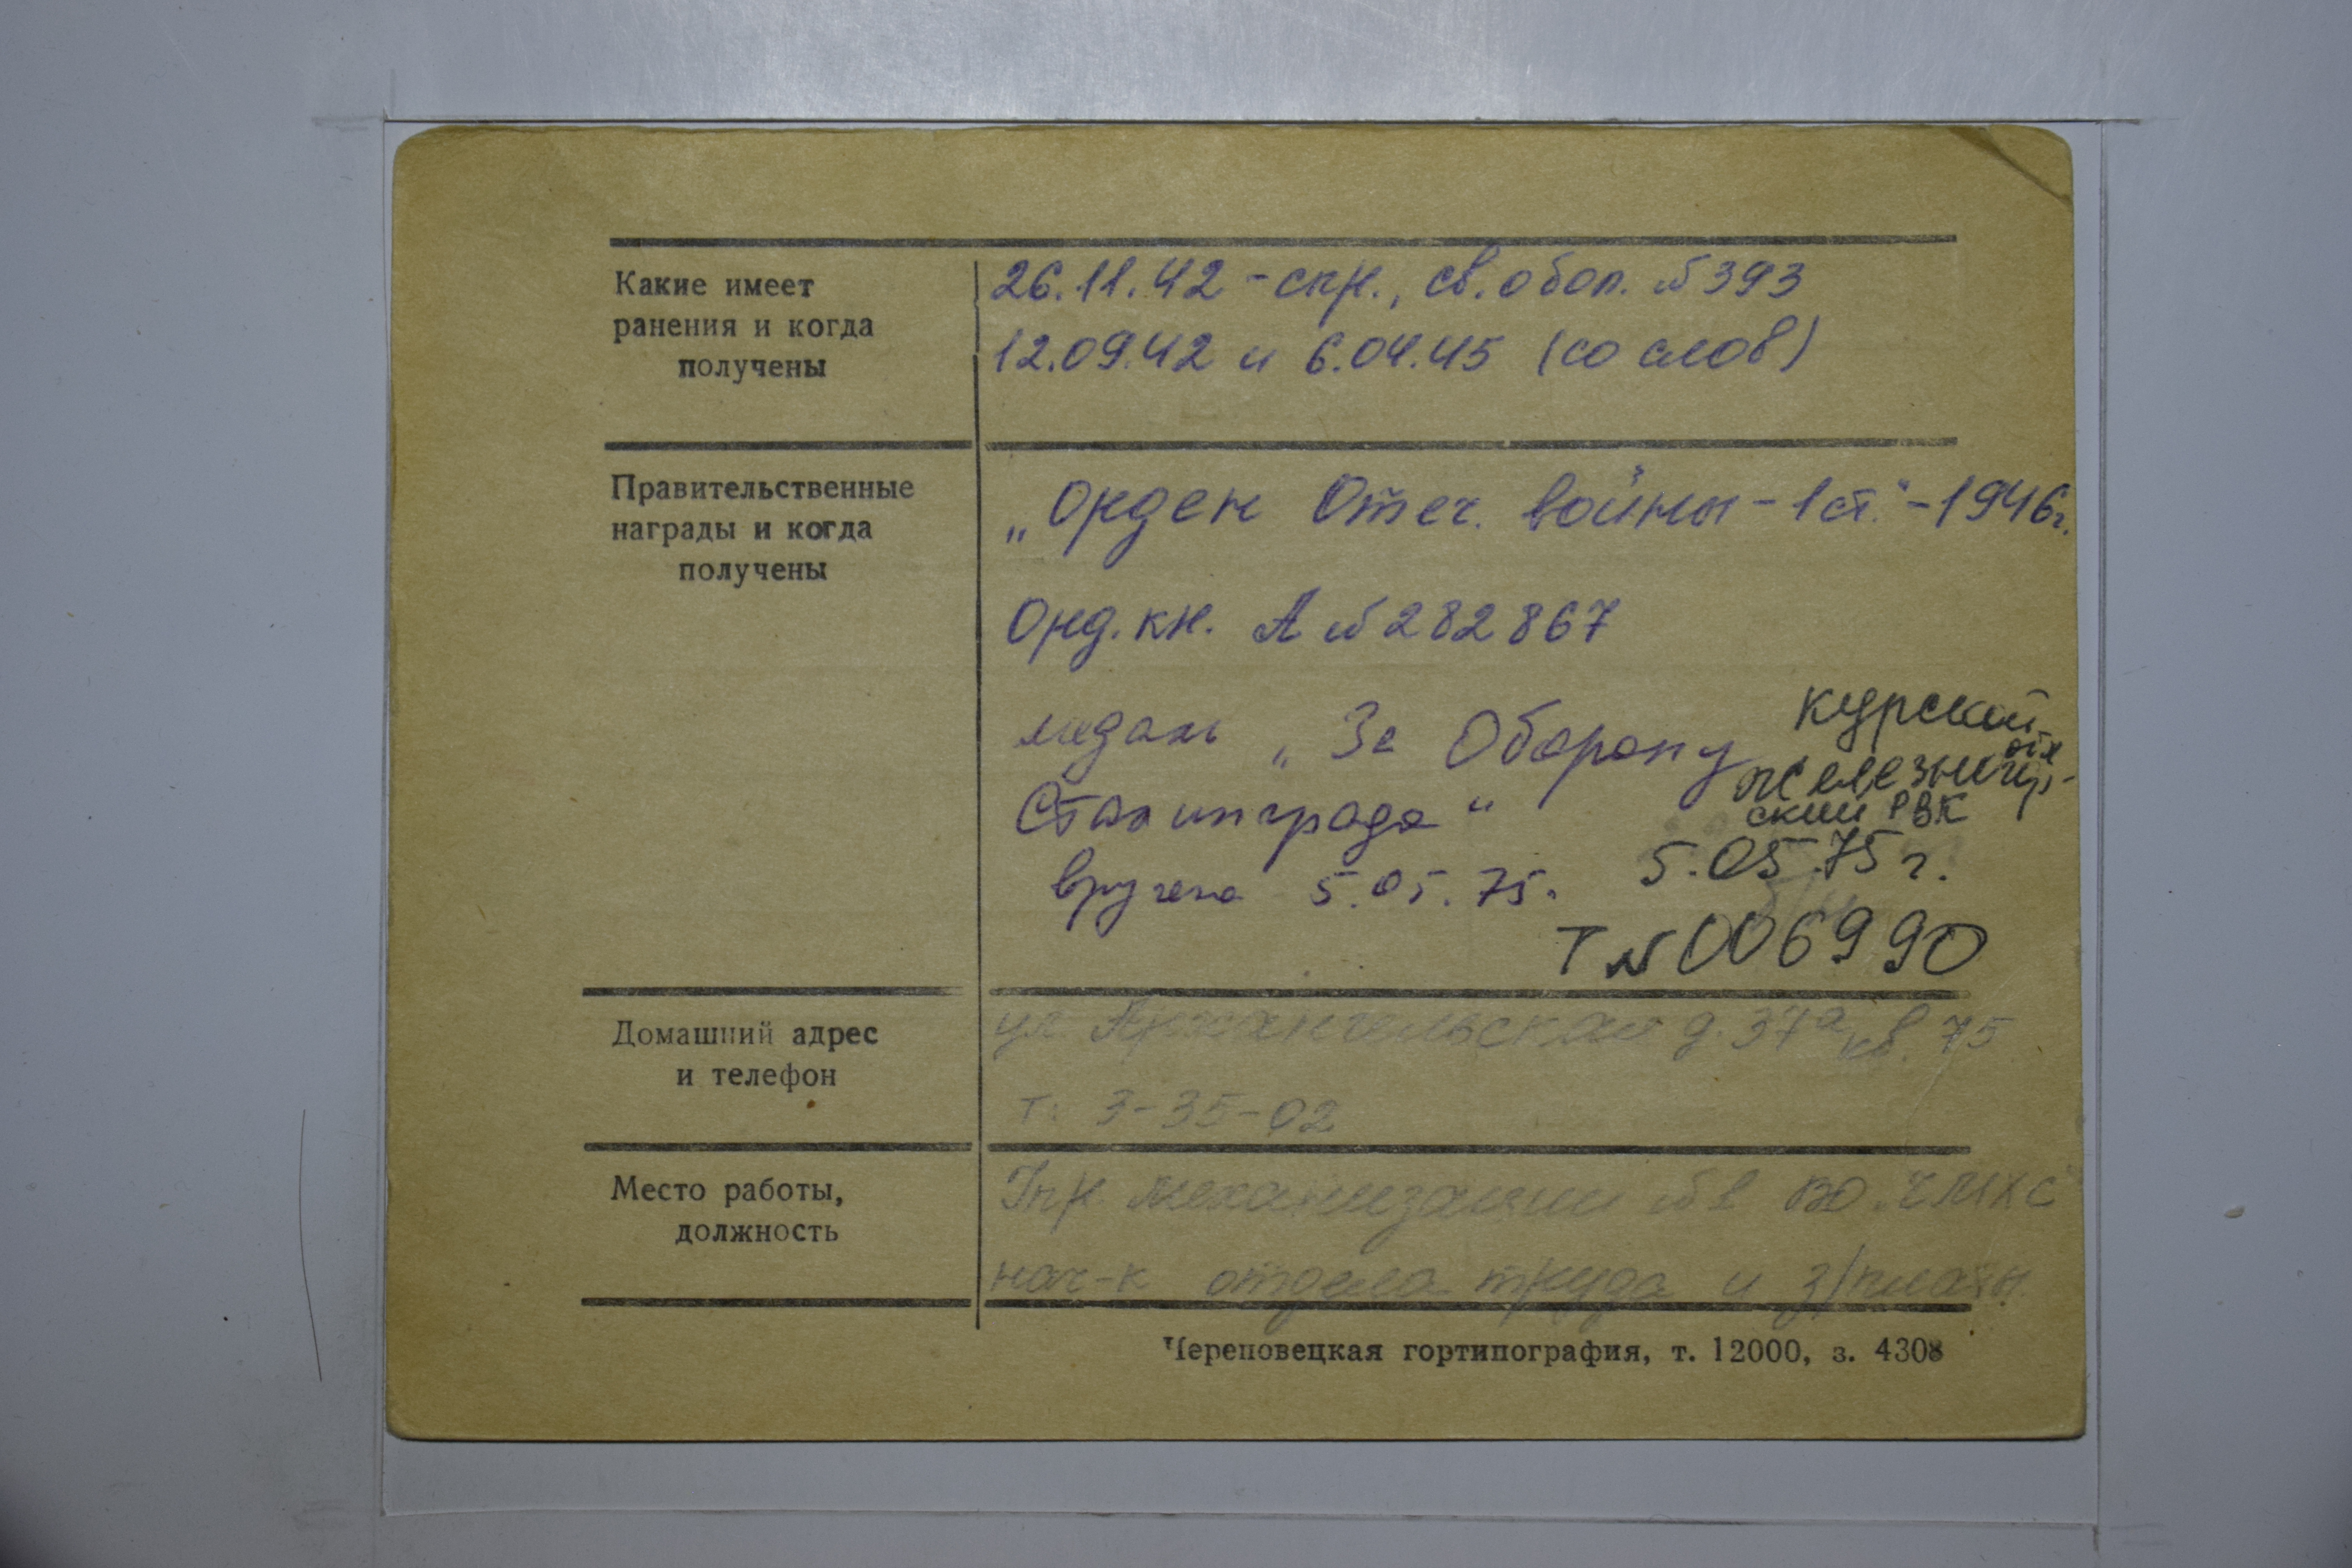 Какие имеет
ранения и когда
получены
26.11.42 - спр., св. о бол. №393
12.09.42 и 6.04.45 (со слов)
Правительственные
награды и когда
получены
„Орден Отеч. войны - 1 ст." - 1946г.
Орд. кн. А №282867
медаль „За Оборону
Сталинграда"
вручена 5.05.75.
Курский
Железногор-
ский РВК
5.05.75 г.
Т №006990
Домашний адрес
и телефон
ул Архангельская д. 37а кв. 75
т. 3-35-02
Место работы,
должность
Упр. механизации №1 ВО. ЧМХС
нач-к отдела труда и з/платы
Череповецкая гортипография, т. 12000, з. 4308